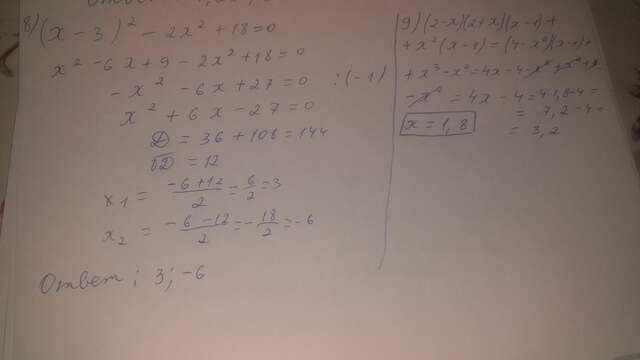 8) (x - 3)² - 2x² + 18 = 0
x² - 6x + 9 - 2x² + 18 = 0
- x² - 6x + 27 = 0 : (-1)
x² + 6x - 27 = 0
D = 36 + 108 = 144
√D = 12
x1 = (-6+12)/2 = 6/2 = 3
x2 = (-6-12)/2 = -18/2 = -6
Ответ: 3; -6
9) (2-x)(2+x)(x-1) +
+ x²(x-1) = (4-x²)(x-1) +
+ x³ - x² = 4x - 4
= 4x - 4 = 4·1,8 - 4 =
= 7,2 - 4 =
= 3,2
x = 1,8